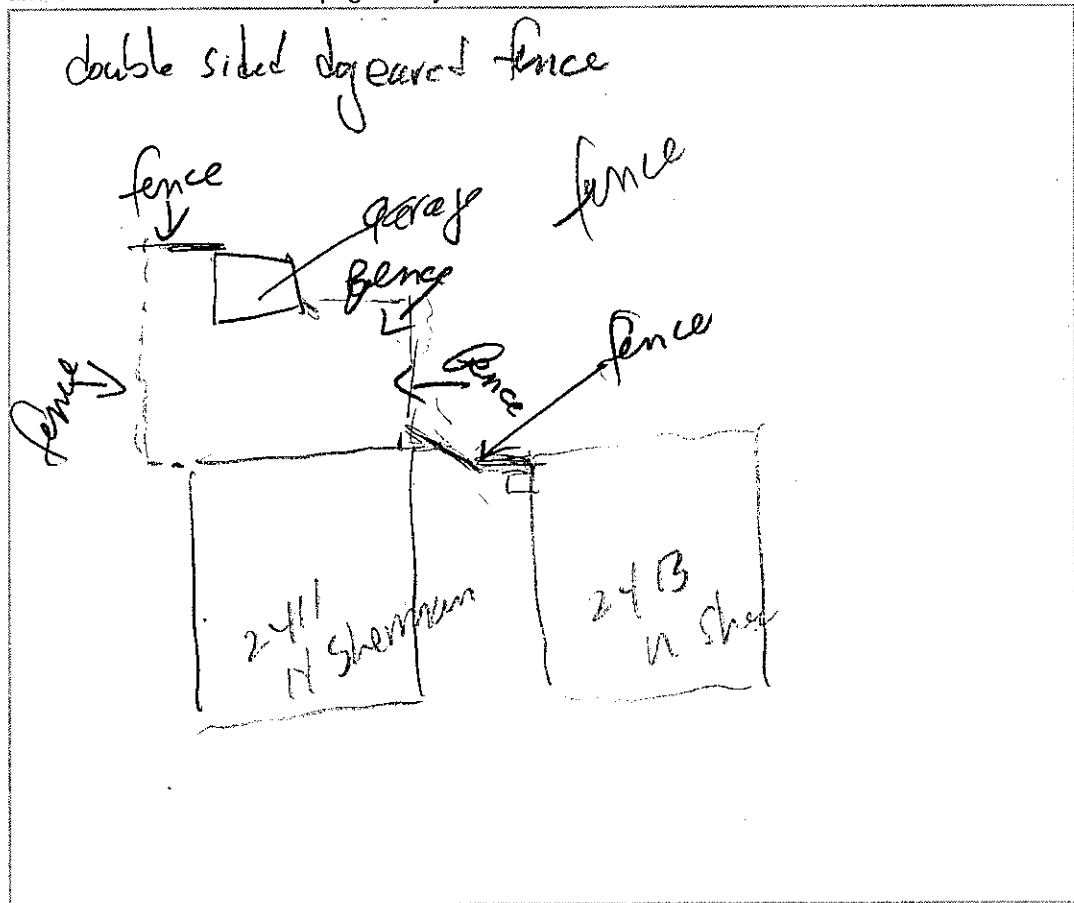 double sided dogeared fence
fence
fence
garage
fence
fence
fence
fence
2411
N Sherman
2413
N Sher